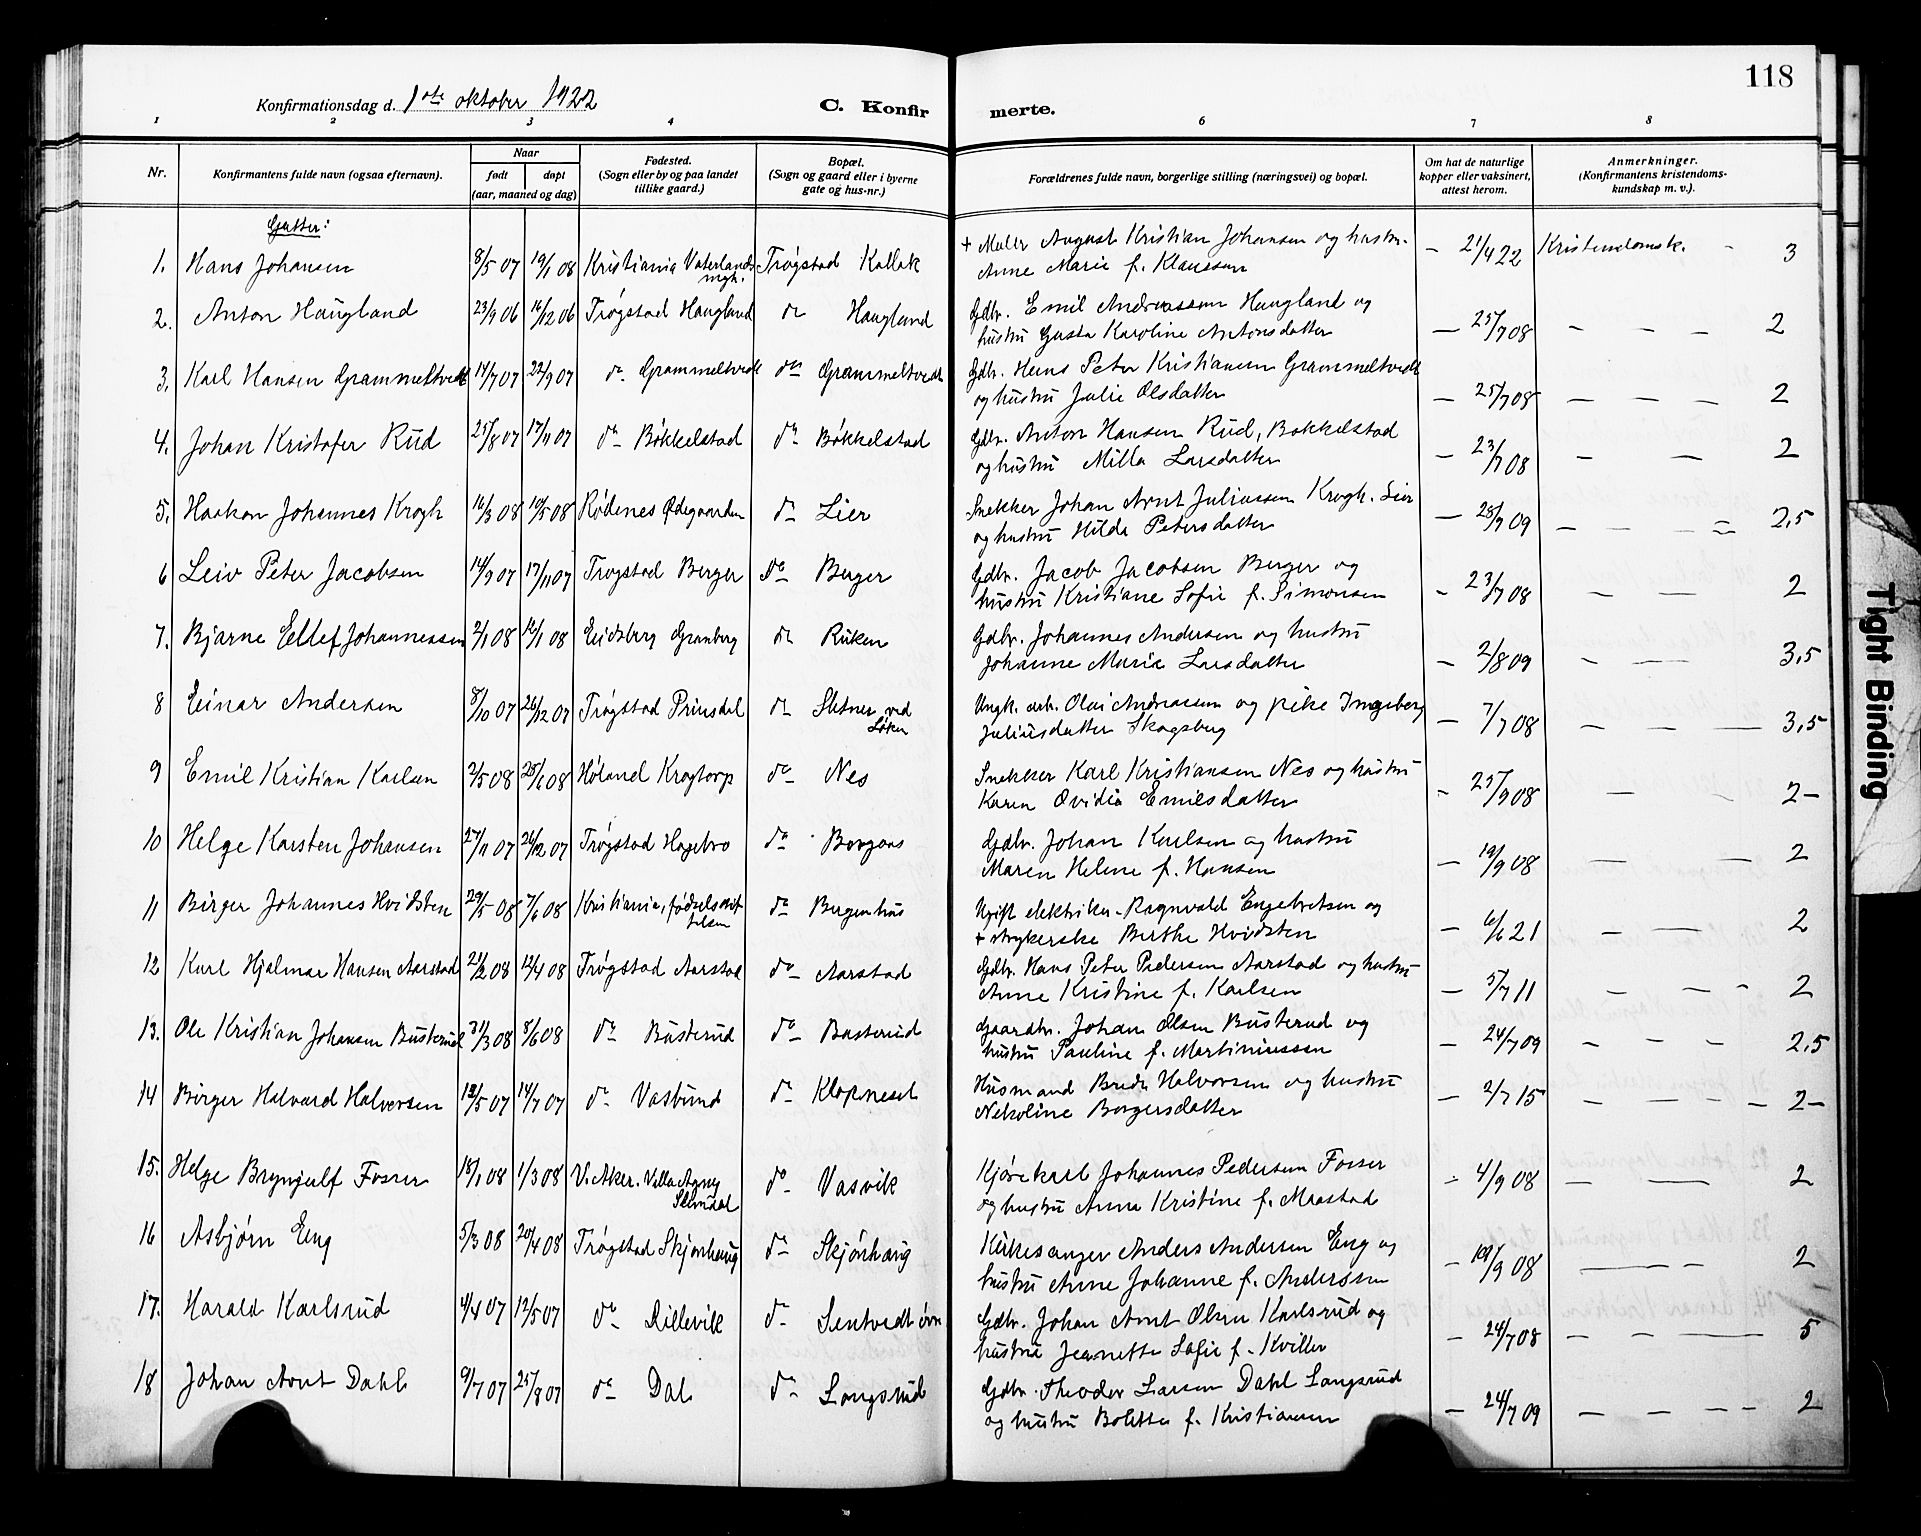 118
Konfirmationsdag d. 1ste oktober 1922
C. Konfir merte.
1 2 3 4 6 7 8
Nr.
Konfirmantens fulde navn (ogsaa efternavn).
Naar
født døpt
(aar, maaned og dag)
Fødested.
(Sogn eller by og paa landet
tillike gaard.)
Bopæl.
(Sogn og gaard eller i byerne
gate og hus-nr.)
Forældrenes fulde navn, borgerlige stilling (næringsvei) og bopæl.
Om hat de naturlige
kopper eller vaksinert,
attest herom.
Anmerkninger.
(Konfirmantens kristendoms-
kundskap m. v.).
Gutter:
1. Hans Johansen 8/5 07 19/1 08 Kristiania Vaterlands mgh. Trøgstad Kallak
+ Maler August Kristian Johansen og hustr.
Anne Marie f. Klaussen — 21/4 22 Kristendomsk. - 3
2. Anton Haugland 23/9 06 16/12 06 Trøgstad Haugland do Haugland
Gdbr. Emil Andreassen Haugland og
hustru Gusta Karoline Antonsdatter — 25/7 08 — — — 2
3. Karl Hansen Grammeltvedt 14/7 07 22/9 07 do Grammeltvedt do Grammeltvedt
Gdbr. Hans Peter Kristiansen Grammeltvedt
og hustru Julie Olsdatter — 25/7 08 — — — 2
4. Johan Kristofer Rud 25/8 07 17/11 07 do Bøkkelstad do Bøkkelstad
Gdbr. Anton Hansen Rud, Bøkkelstad
og hustru Milla Larsdatter — 23/7 08 — — 2
5. Haakon Johannes Krogh 16/3 08 10/5 08 Rødenes Ødegaarden do Lier
Snekker Johan Arnt Juliussen Krogh. Lier
og hustru Hilda Petersdatter — 28/7 09 — — — = 2,5
6 Leiv Peter Jacobsen 14/9 07 17/11 07 Trøgstad Berger do Berger
Gdbr. Jacob Jacobsen Berger og
hustru Kristiane Sofie f. Simonsen - 23/7 08 — — 2
7. Bjarne Ellef Johannessen 2/1 08 16/1 08 Eidsberg Granberg do Ruken
Gdbr. Johannes Andersen og hustru
Johanne Marie Larsdatter — 2/8 09 — — 3,5
8 Einar Andersen 8/10 07 26/12 07 Trøgstad Prinsdal do Sletner ved Løken
Ungk. arb. Olai Andreassen og pike Ingeborg
Juliusdatter Skogsberg — 7/7 08 — — — 3,5
9 Emil Kristian Karlsen 2/5 08 28/6 08 Høland Krogtorp do Nes
Snekker Karl Kristiansen Nes og hustru
Karen Ovidia Emilsdatter - 25/9 08 — 2-
10 Helge Karsten Johansen 27/11 07 26/12 07 Trøgstad Hagebro do Borgaas
Gdbr. Johan Karlsen og hustru
Maren Helene f. Hansen — 19/9 08 — — 2
11 Birger Johannes Hvidsten 29/5 08 7/6 08 Kristiania, fødselsstiftelsen do Bergenhus
Ugift elektriker Ragnvald Engebretsen og
+ strykerske Birthe Hvidsten — 6/6 21 — — 2
12 Karl Hjalmar Hansen Aarstad 21/2 08 12/4 08 Trøgstad Aarstad do Aarstad
Gdbr. Hans Peter Pedersen Aarstad og hustru
Anne Kristine f. Karlsen — 5/7 11 — — - 2
13. Ole Kristian Johansen Busterud 31/3 08 8/6 08 do Busterud do Busterud
Gaardbr. Johan Olsen Busterud og
hustru Pauline f. Martiniussen — 24/7 09 — — — 2,5
14 Birger Halvard Halvorsen 18/5 07 14/7 07 do Vasbund do Klopneset
Husmand Brede Halvorsen og hustru
Nekoline Borgersdatter — 2/7 15 — — — — 2-
15. Helge Brynjulf Fosser 18/1 08 1/3 08 V. Aker. Villa Agny Slemdal do Vasvik
Kjørekarl Johannes Pedersen Fosser
og hustru Anna Kristine f. Maastad - 4/9 08 — — 2
16 Asbjørn Eng 5/3 08 20/4 08 Trøgstad Skjønhaug do Skjønhaug
Kirkesanger Anders Andersen Eng og
hustru Anne Johanne f. Andersen — 19/9 08 — — — 2
17. Harald Karlsrud 4/4 07 12/5 07 do Lillevik do Sentvedt øvr.
Gdbr. Johan Arnt Olsen Karlsrud og
hustru Jeanette Sofie f. Kviller — 24/7 08 — — — 5
18 Johan Arnt Dahl 9/7 07 25/8 07 do Dal do Langsrud
Gdbr. Theodor Larsen Dahl Langsrud
og hustru Bolette f. Kristiansen — 24/7 09 — — — 2
Tight Binding